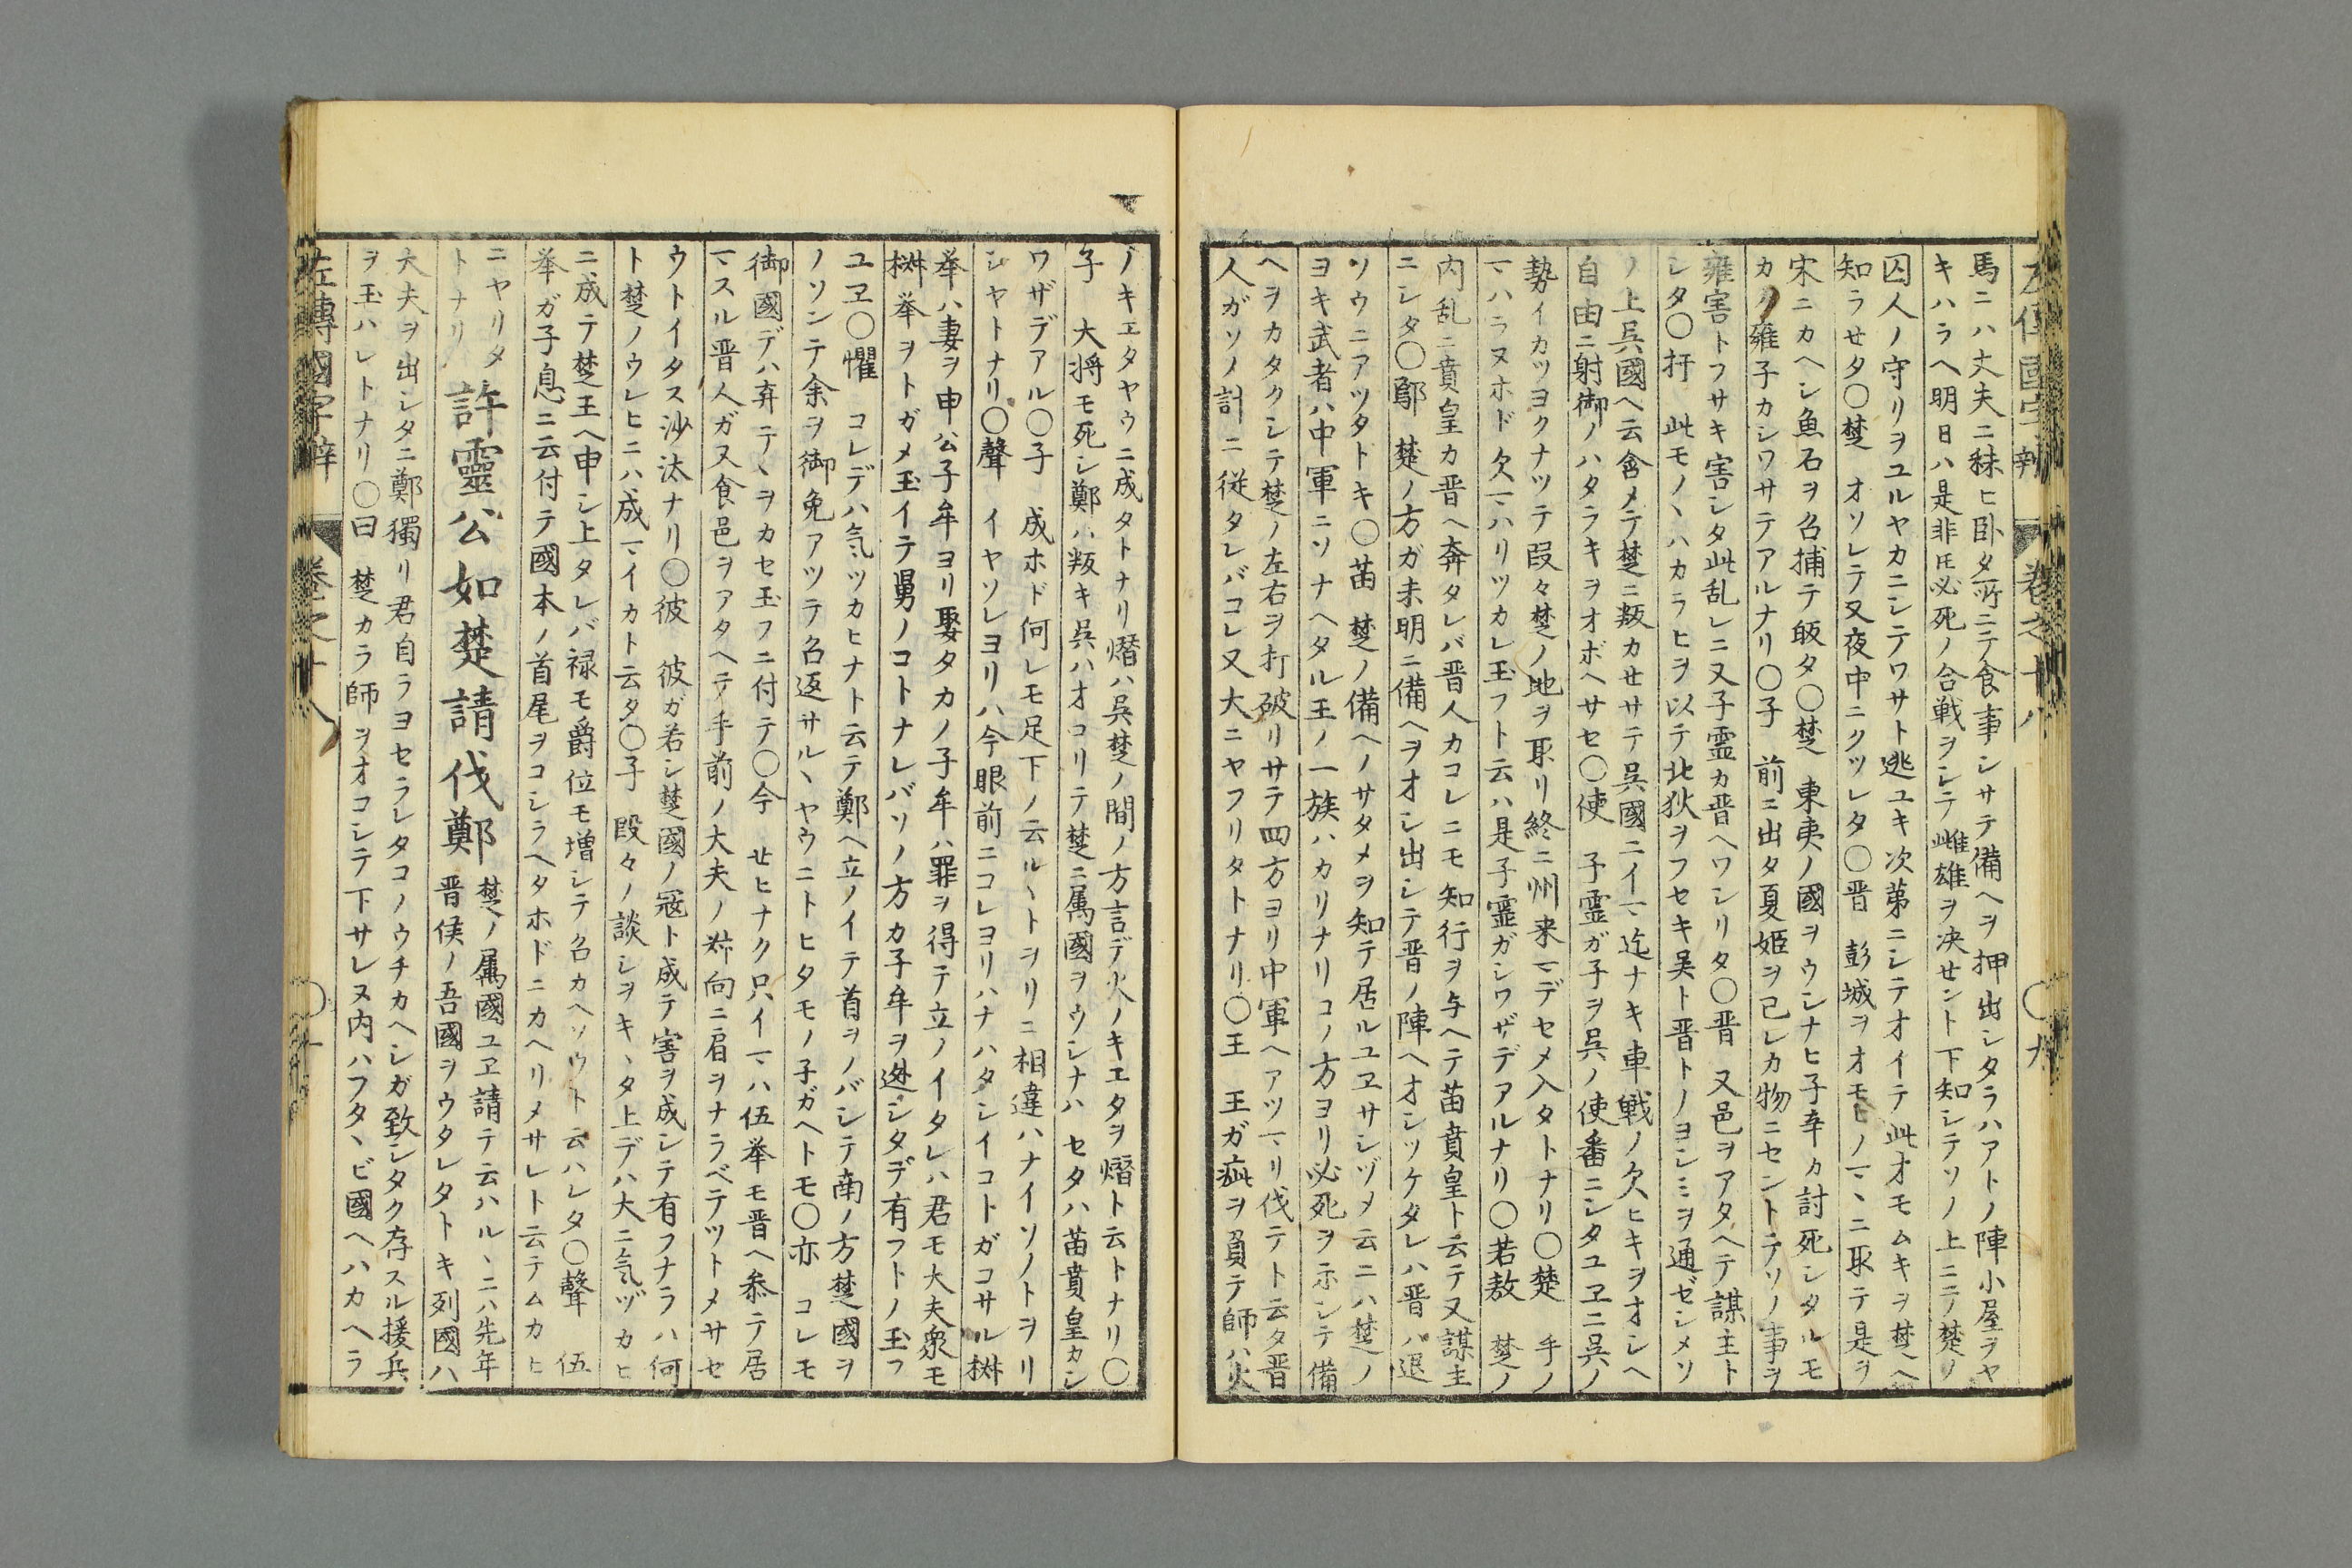 左傳國字辨 卷之十八 〇九
馬ニハ丈夫ニ秣ヒ卧タ所ニテ食事シサテ備ヘヲ押出シタラハアトノ陣小屋ヲヤ
キハラヘ明日ハ是非トモ必死ノ合戦ヲシテ雌雄ヲ决セント下知シテソノ上ニテ楚ノ
囚人ノ守リヲユルヤカニシテワサト逃ユキ次第ニシテオイテ此オモムキヲ楚ヘ
知ラセタ〇楚 オソレテ又夜中ニクツレタ〇晋 彭城ヲオモヒノマヽニ取テ是ヲ
宋ニカヘシ魚石ヲ召捕テ皈タ〇楚 東夷ノ國ヲウシナヒ子辛カ討死シタルモ
カク雍子カシワサテアルナリ〇子 前ニ出タ夏姫ヲ己レカ物ニセントテソノ事ヲ
雍害トフサキ害シタ此乱レニ又子霊カ晋ヘワシリタ〇晋 又邑ヲアタヘテ謀主ト
シタ〇扞 此モノヽハカラヒヲ以テ北狄ヲフセキ吴ト晋トノヨシミヲ通ゼシメソ
ノ上呉國ヘ云含メテ楚ニ叛カせサテ呉國ニイマヽ迄ナキ車戦ノ欠ヒキヲオシヘ
自由ニ射御ノハタラキヲオボヘサセ〇使 子霊ガ子ヲ呉ノ使番ニシタユヱニ呉ノ
勢イカツヨクナツテ段々楚ノ地ヲ取リ終ニ州来マデセメ入タトナリ〇楚 手ノ
マハラヌホド欠マハリツカレ玉フト云ハ是子霊ガシワザデアルナリ〇若敖 楚ノ
内乱ニ賁皇カ晋ヘ奔タレバ晋人カコレニモ知行ヲ与ヘテ苗賁皇ト云テ又謀主
ニシタ〇鄢 楚ノ方ガ未明ニ備ヘヲオシ出シテ晋ノ陣ヘオシツケタレハ晋ハ退
ソウニアツタトキ〇苗 楚ノ備ヘノサタメヲ知テ居ルユヱサシヅメ云ニハ楚ノ
ヨキ武者ハ中軍ニソナヘタル王ノ一族ハカリナリコノ方ヨリ必死ヲ示シテ備
ヘヲカタクシテ楚ノ左右ヲ打破リサテ四方ヨリ中軍ヘアツマリ伐テト云タ晋
人ガソノ計ニ従タレバコレ又大ニヤフリタトナリ〇王 王ガ疵ヲ負テ師ハ火
ノキエタヤウニ成タトナリ熸ハ呉楚ノ間ノ方言デ火ノキエタヲ熸ト云トナリ〇
子 大将モ死シ鄭ハ叛キ呉ハオコリテ楚ニ属國ヲウシナハセタハ苗賁皇カシ
ワザデアル〇子 成ホド何レモ足下ノ云ルヽトヲリニ相違ハナイソノトヲリ
シヤトナリ〇聲 イヤソレヨリハ今眼前ニコレヨリハナハタシイコトガコサル椒
举ハ妻ヲ申公子牟ヨリ娶タカノ子牟ハ罪ヲ得テ立ノイタレハ君モ大夫衆モ
椒举ヲトガメ玉イテ舅ノコトナレバソノ方カ子牟ヲ迯シタデ有フトノ玉フ
ユヱ〇懼 コレデハ気ツカヒナト云テ鄭ヘ立ノイテ首ヲノバシテ南ノ方楚國ヲ
ノソンテ余ヲ御免アツテ召返サルヽヤウニトヒタモノ子ガヘトモ〇亦 コレモ
御國デハ弃テヽヲカセ玉フニ付テ〇今 せヒナク只イマハ伍举モ晋ヘ叅テ居
マスル晋人ガ又食邑ヲアタヘテ手前ノ大夫ノ叔向ニ肩ヲナラベテツトメサセ
ウトイタス沙汰ナリ〇彼 彼ガ若シ楚國ノ寇ト成テ害ヲ成シテ有フナラハ何
ト楚ノウレヒニハ成マイカト云タ〇子 段々ノ談シヲキヽタ上デハ大ニ気ヅカヒ
ニ成テ楚王ヘ申シ上タレバ禄モ爵位モ増シテ召カヘソウト云ハレタ〇聲 伍
举ガ子息ニ云付テ國本ノ首尾ヲコシラヘタホドニカヘリメサレト云テムカヒ
ニヤリタ
トナリ 許靈公如楚請伐鄭 楚ノ属國ユヱ請テ云ハルヽニハ先年
晋侯ノ吾國ヲウタレタトキ列國ハ
大夫ヲ出シタニ鄭獨リ君自ラヨセラレタコノウチカヘシガ致シタク存スル援兵
ヲ玉ハレトナリ〇曰 楚カラ師ヲオコシテ下サレヌ内ハフタヽビ國ヘハカヘラ
左傳國字辨 卷之十八 〇十